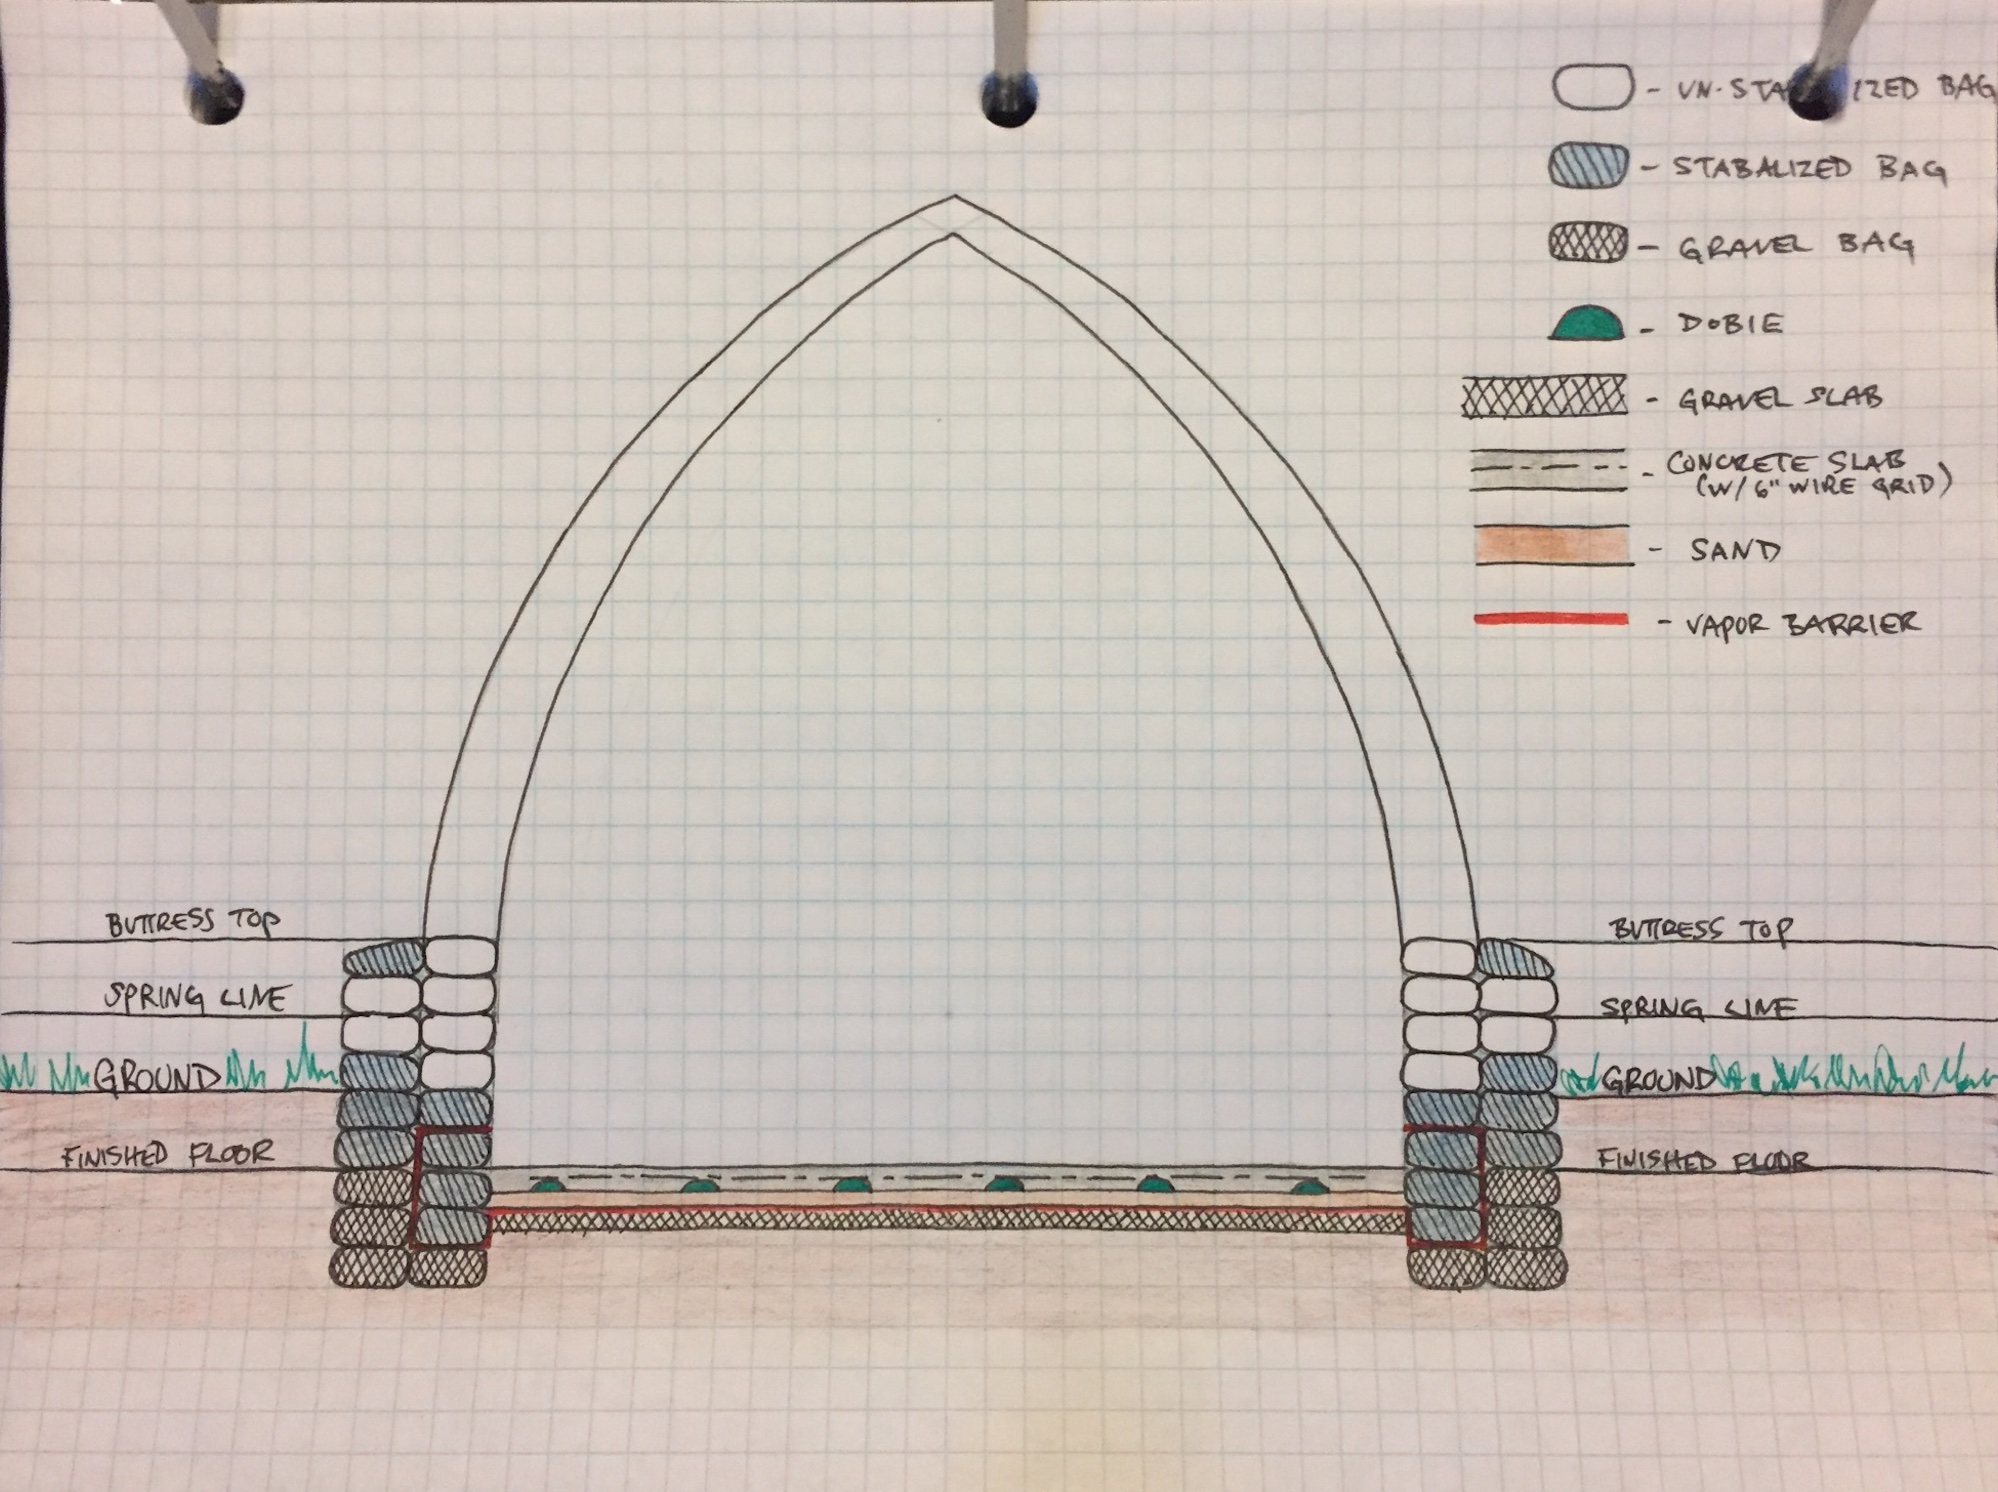 VN-STA IZED BAG
- STABALIZED BAG
- GRAVEL BAG
- DOBIE
- GRAVEL SLAB
- CONCRETE SLAB
(W/ 6" WIRE GRID)
- SAND
- VAPOR BARRIER
BUTTRESS TOP
SPRING LINE
GROUND
FINISHED FLOOR
BUTTRESS TOP
SPRING LINE
GROUND
FINISHED FLOOR